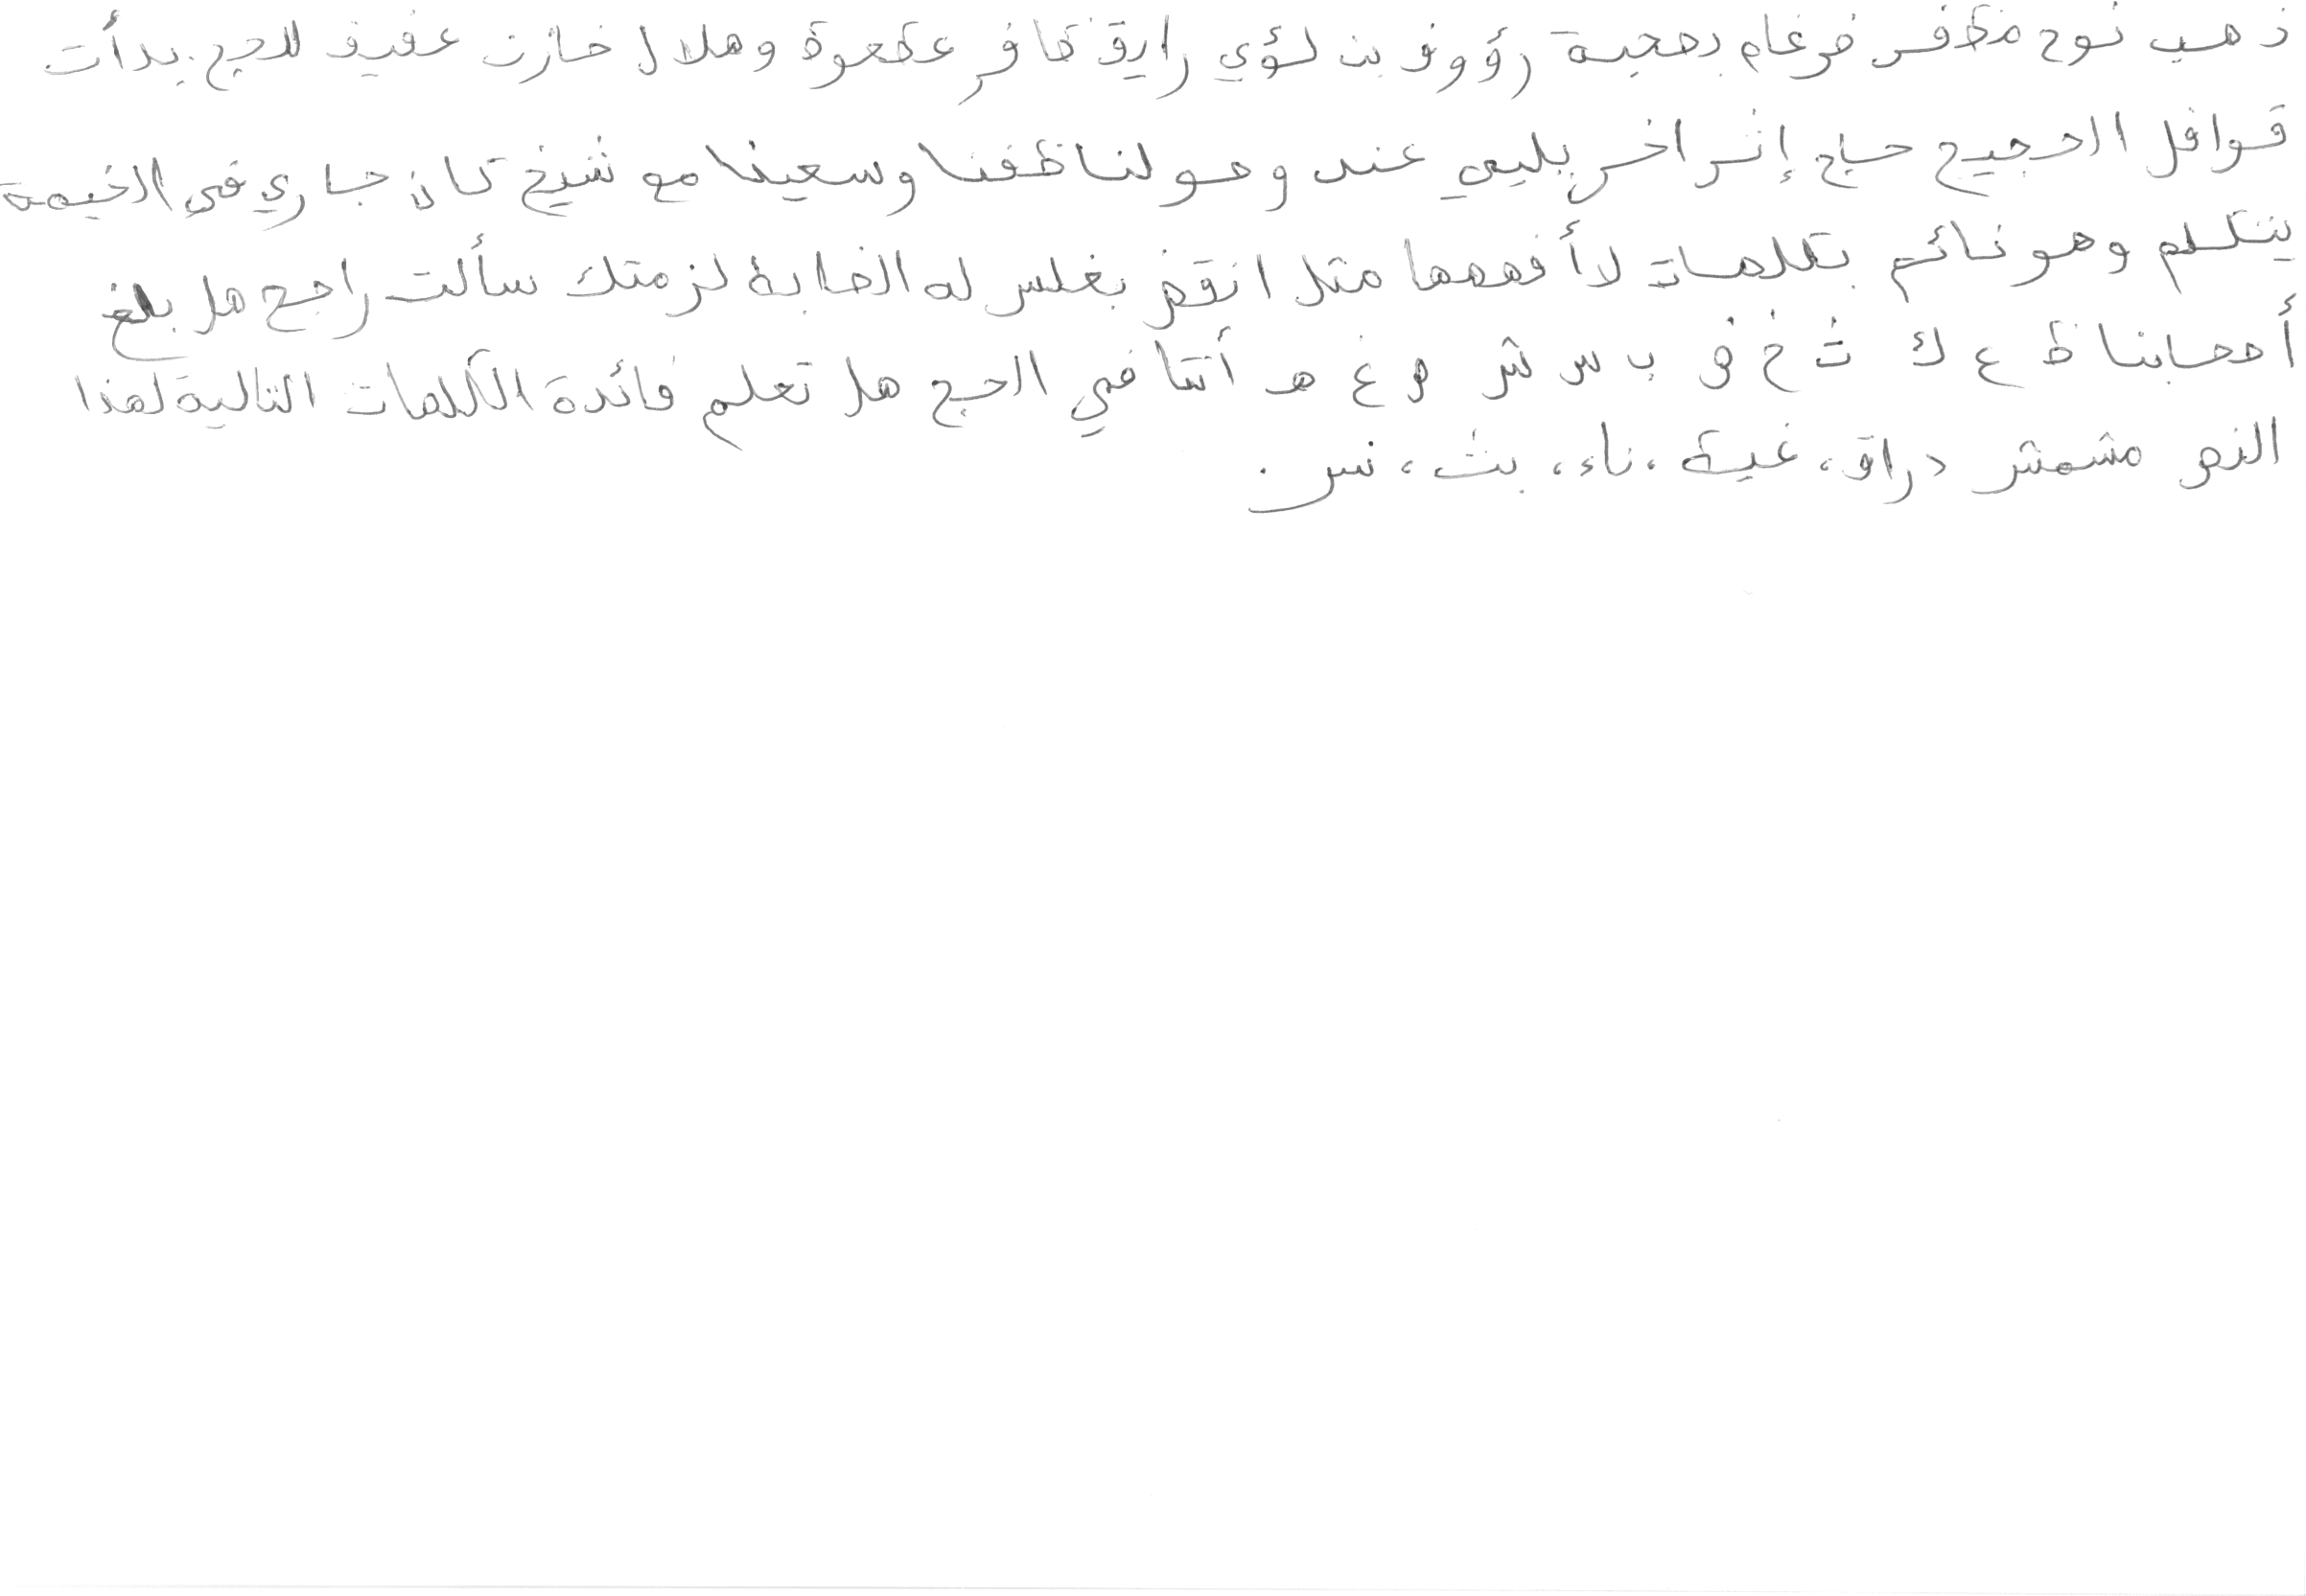 ذهب نوح مظفر ضرغام بصحبة رؤوف بن لؤي رايق ظافر عكعوة وهلال خازن عفيف للحج. بدأت
قوافل الحجيج حاج إثر اخر بليص عند وصولنا طفنا وسعينا مع شيخ كان جاري في الخيمة
يتكلم وهو نائم بكلمات لا أفهمها مثل انقض بغلس له الضابط لزمتك سألت راجح هل بلغ
أصحابنا ظ ع ك ث خ ق ب س ش و غ هـ أثنا في الحج هل تعلم فائدة الكلمات التالية لهذا
النص مشمش دراق، غيظ، ناء، بث، نس.